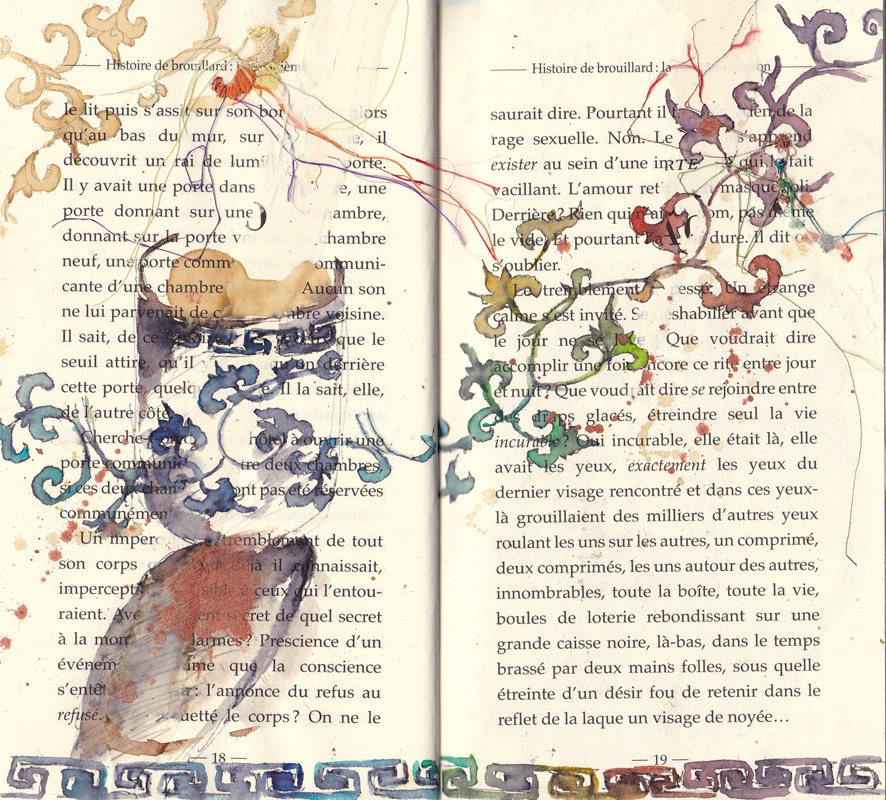 Histoire de brouillard :
le lit puis s'assit sur son bor alors
qu'au bas du mur, sur e, il
découvrit un rai de lumi porte.
Il y avait une porte dans e, une
porte donnant sur une chambre,
donnant sur la porte vo chambre
neuf, une porte comm ommuni-
cante d'une chambre Aucun son
ne lui parvenait de c bre voisine.
Il sait, de ce que le
seuil attire, qu'il y qu'un derrière
cette porte, quelq e. Il la sait, elle,
de l'autre côté
Cherche-t-on hôtel à ouvrir une
porte communic tre deux chambres,
si ces deux cham ont pas été réservées
communémen
Un imperc tremblement de tout
son corps déjà il connaissait,
impercepti sible à ceux qui l'entou-
raient. Ave ent secret de quel secret
à la mor larmes ? Prescience d'un
événem ime que la conscience
s'entê a : l'annonce du refus au
refusé. uetté le corps ? On ne le
18
Histoire de brouillard : la on
saurait dire. Pourtant il ien de la
rage sexuelle. Non. Le s'apprend
exister au sein d'une im RTE é qui le fait
vacillant. L'amour ret masque poli.
Derrière ? Rien qui n'ai om, pas même
le vide. Et pourtant la 17 dure. Il dit o
s'oublier.
Le tremblement cessé. Un étrange
calme s'est invité. Se déshabiller avant que
le jour ne se lève Que voudrait dire
accomplir une fois encore ce rite entre jour
et nuit ? Que voudrait dire se rejoindre entre
des draps glacés, étreindre seul la vie
incurable ? Qui incurable, elle était là, elle
avait les yeux, exactement les yeux du
dernier visage rencontré et dans ces yeux-
là grouillaient des milliers d'autres yeux
roulant les uns sur les autres, un comprimé,
deux comprimés, les uns autour des autres,
innombrables, toute la boîte, toute la vie,
boules de loterie rebondissant sur une
grande caisse noire, là-bas, dans le temps
brassé par deux mains folles, sous quelle
étreinte d'un désir fou de retenir dans le
reflet de la laque un visage de noyée…
19